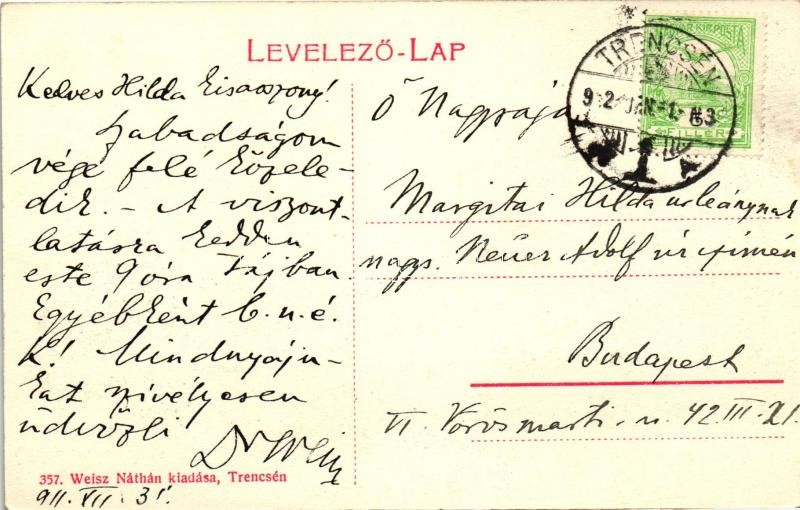 LEVELEZŐ-LAP
Kedves Hilda kisasszony!
Szabadságom
vége felé köze­le-
dik. - A viszont-
látásra kedden
este 9 óra tájban.
Egyébként b. n. é.
k! Mindnyáju-
kat szivélyesen
üdvözli
Dr Wein
911. VII. 31.
357. Weisz Náthán kiadása, Trencsén
MAGYAR KIR. POSTA
FILLER
TRENCSÉN
Ő Nagysága
Margitai Hilda urleánynak
nagys. Neuer Adolf úr címén
Budapest
VI Vörösmarti-u. 42 III. 21.